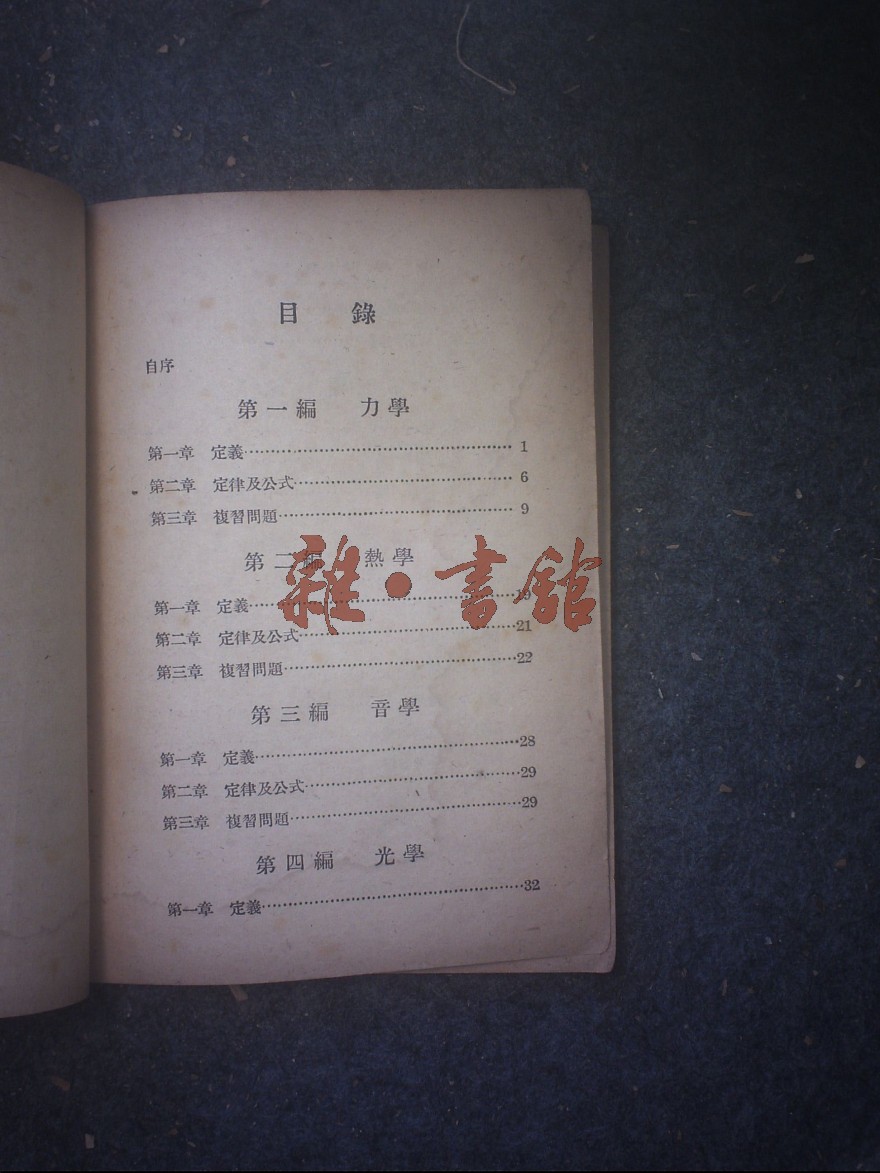 目錄
自序
第一編 力學
第一章 定義⋯⋯⋯⋯⋯⋯⋯⋯⋯⋯⋯⋯ 1
第二章 定律及公式⋯⋯⋯⋯⋯⋯⋯⋯⋯⋯ 6
第三章 複習問題⋯⋯⋯⋯⋯⋯⋯⋯⋯⋯⋯ 9
第二編 熱學
雜•書館
第一章 定義⋯⋯⋯⋯⋯⋯⋯⋯⋯⋯⋯⋯19
第二章 定律及公式⋯⋯⋯⋯⋯⋯⋯⋯⋯⋯21
第三章 複習問題⋯⋯⋯⋯⋯⋯⋯⋯⋯⋯⋯22
第三編 音學
第一章 定義⋯⋯⋯⋯⋯⋯⋯⋯⋯⋯⋯⋯28
第二章 定律及公式⋯⋯⋯⋯⋯⋯⋯⋯⋯⋯29
第三章 複習問題⋯⋯⋯⋯⋯⋯⋯⋯⋯⋯⋯29
第四編 光學
第一章 定義⋯⋯⋯⋯⋯⋯⋯⋯⋯⋯⋯⋯32